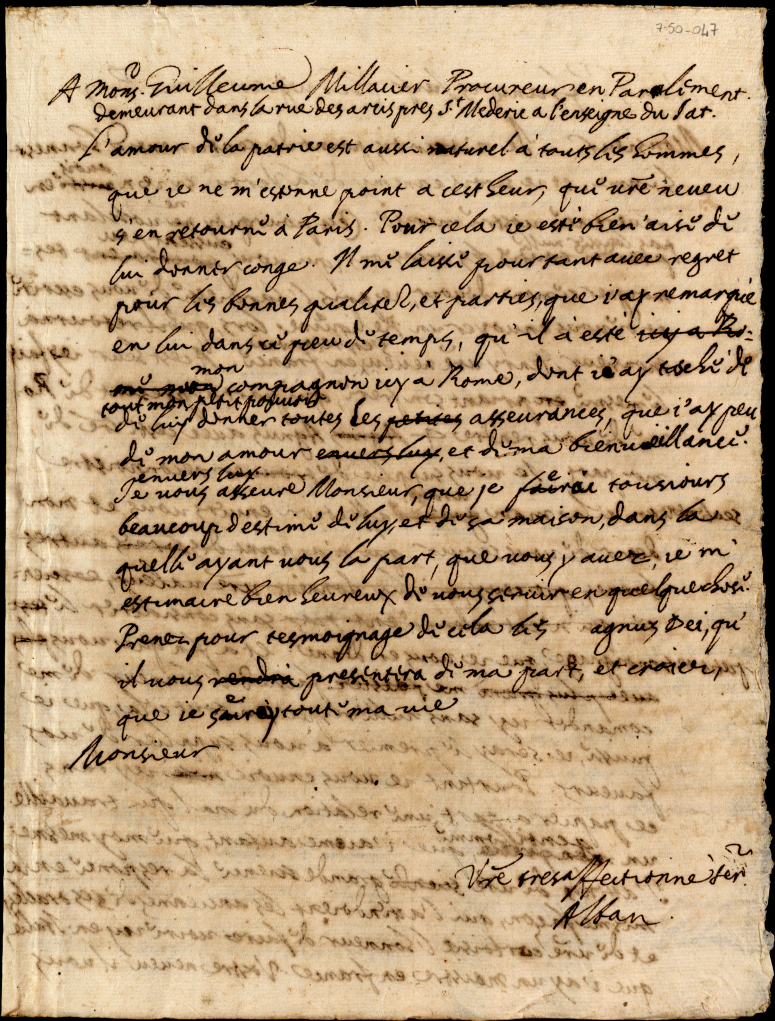 7-50-047
A Mons.r Guilleume Millavier Procureur en Parlement.
demeurant dans la rue des arcis pres S.t Mederic a l'enseigne du Sat.
L'amour de la patrie est aussi naturel à touts les hommes,
que ie ne m'estonne point a cest heur, que vre neveu
s'en retourne à Paris. Pour cela ie esté bien'aise de
lui donner conge. Il me laisse pourtant avec regret
pour les bonnes qualitez, et parties, que i'ay remarque
en lui dans ce peu de temps, qu'il à esté icy a Ro-
me mon
mon compagnon icy à Rome, dont i'ay tasché de
tout mon petit pouvoir
de luy donner toutes les petites asseurances, que i'ay peu
de mon amour envers luy, et de ma bienveillance.
envers luy
Je vous asseure Monsieur, que je faire tousiours
beaucoup d'estime de luy, et de sa maison, dans la
quelle ayant vous la part, que vous y avez, ie m'
estimaire bien heureux de vous servir en quelque chose.
Prenez pour tesmoignage de cela les agnus Dei, qu'
il vous rendra presentera de ma part, et croiez,
que ie serey toute ma vie
Monsieur
Vre tresaffectionné ser.r
Alban